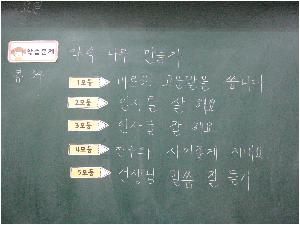 학습문제
약속 나무 만들기
1모둠 바르고 고운말을 씁니다
2모둠 인사를 잘 해요
3모둠 인사를 잘 해요
4모둠 친구와 사이좋게 지내요
5모둠 선생님 말씀 잘 듣기